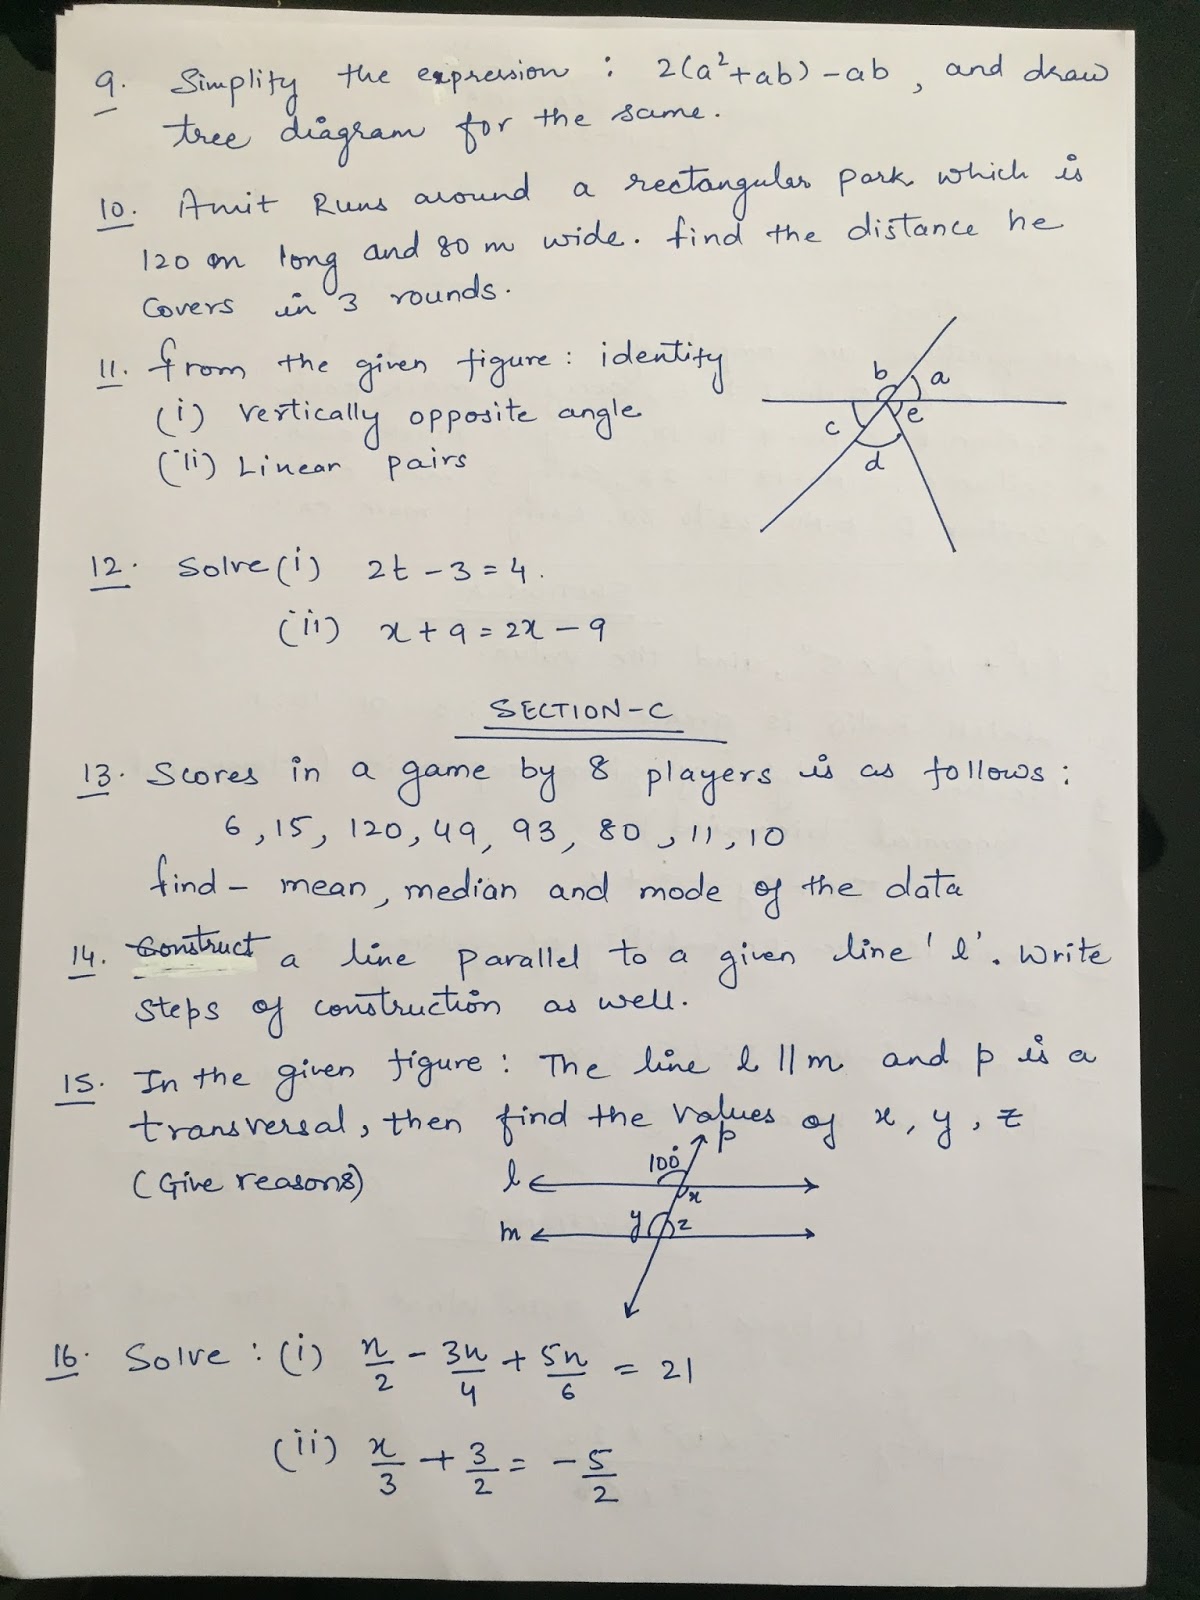 9. Simplify the expression : 2(a²+ab)-ab, and draw
tree diagram for the same.
10. Amit Runs around a rectangular park which is
120 m long and 80 m wide. find the distance he
covers in 3 rounds.
11. from the given figure: identify
(i) vertically opposite angle
(ii) Linear pairs
b
a
c
e
d
12. Solve (i) 2t - 3 = 4.
(ii) x + 9 = 2x - 9
SECTION-C
13. Scores in a game by 8 players is as follows:
6, 15, 120, 49, 93, 80, 11, 10
find - mean, median and mode of the data
14. Construct a line parallel to a given line 'l'. Write
steps of construction as well.
15. In the given figure: The line l || m and p is a
transversal, then find the values of x, y, z
(Give reasons)
p
100°
l
x
m
y
z
16. Solve : (i) n/2 - 3n/4 + 5n/6 = 21
(ii) x/3 + 3/2 = -5/2